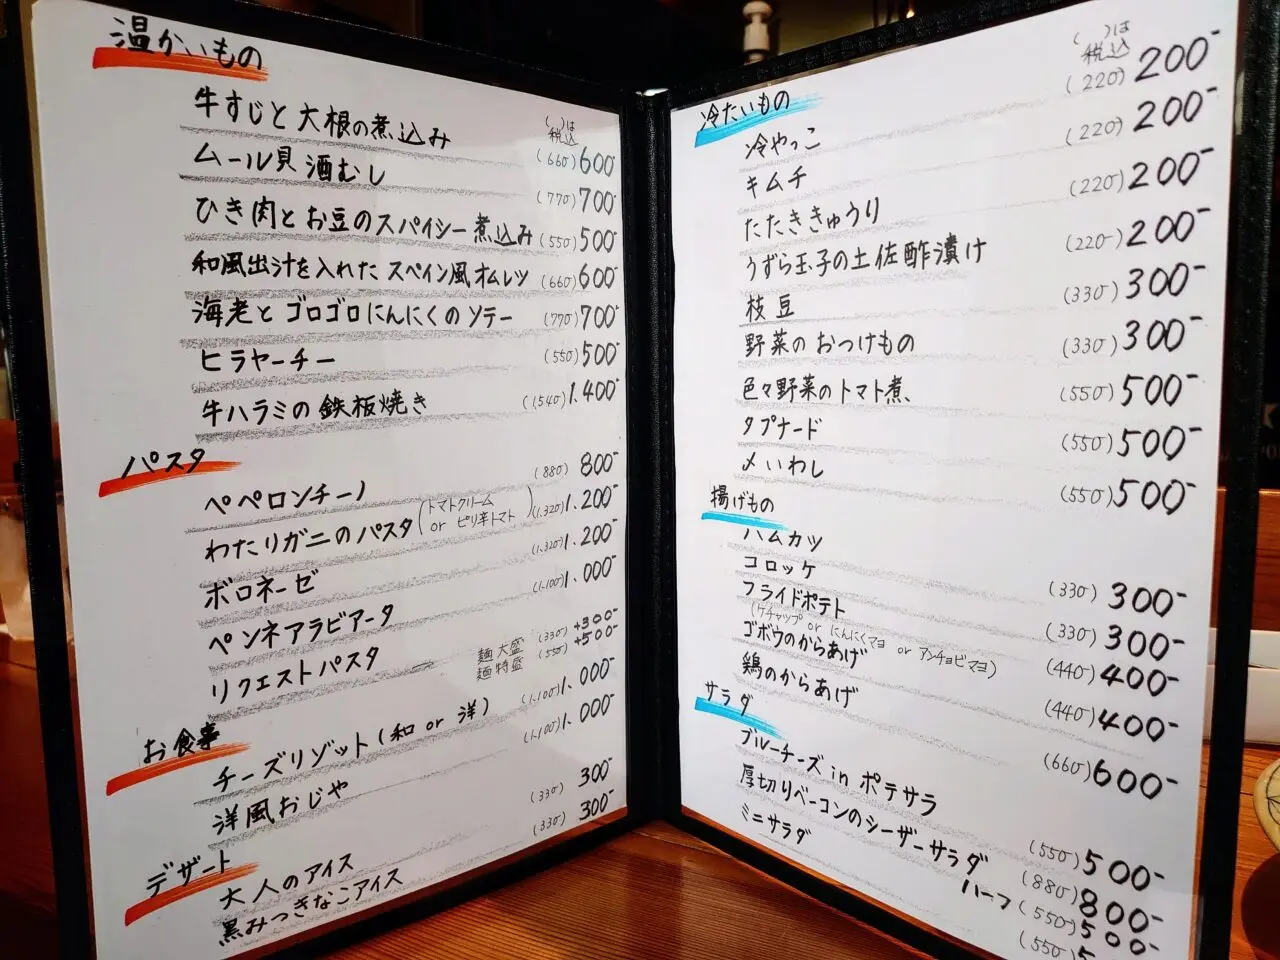 温かいもの
( )は
税込
牛すじと大根の煮込み (660) 600-
ムール貝 酒むし (770) 700-
ひき肉とお豆のスパイシー煮込み (550) 500-
和風出汁を入れた スペイン風オムレツ (660) 600-
海老とゴロゴロにんにくのソテー (770) 700-
ヒラヤーチー (550) 500-
牛ハラミの鉄板焼き (1,540) 1.400-
パスタ
ペペロンチーノ (880) 800-
わたりガニのパスタ (トマトクリーム or ピリ辛トマト) (1.320) 1.200-
ボロネーゼ (1.320) 1.200-
ペンネアラビアータ (1.100) 1.000-
リクエストパスタ
麺大盛 (330) +300-
麺特盛 (550) +500-
お食事
チーズリゾット(和 or 洋) (1.100) 1.000-
洋風おじや (1.100) 1.000-
デザート
大人のアイス (330) 300-
黒みつきなこアイス (330) 300-
冷たいもの
( )は
税込
冷やっこ (220) 200-
キムチ (220) 200-
たたききゅうり (220) 200-
うずら玉子の土佐酢漬け (220) 200-
枝豆 (330) 300-
野菜のおつけもの (330) 300-
色々野菜のトマト煮、 (550) 500-
タプナード (550) 500-
〆いわし (550) 500-
揚げもの
ハムカツ (330) 300-
コロッケ (330) 300-
フライドポテト (440) 400-
(ケチャップ or にんにくマヨ or アンチョビマヨ)
ゴボウのからあげ (440) 400-
鶏のからあげ (660) 600-
サラダ
ブルーチーズ in ポテサラ (550) 500-
厚切りベーコンのシーザーサラダ (880) 800-
ハーフ (550) 500-
ミニサラダ (550)